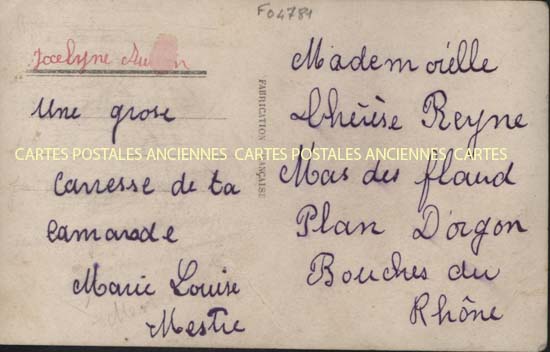 F04784
Jocelyne
Une grose
Carresse de ta
camarade
Marie Louise
Mestre
FABRICATION FRANÇAISE
Mademoiélle
Thérèse Reyne
Mas des flaud
Plan D'orgon
Bouches du
Rhône
CARTES POSTALES ANCIENNES CARTES POSTALES ANCIENNES CARTES